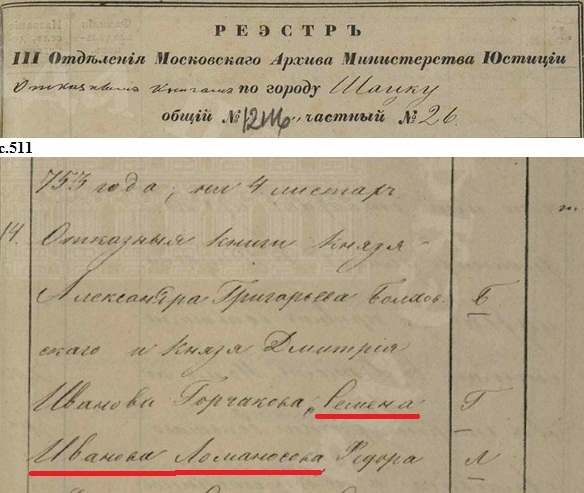 РЕЭСТРЪ
III Отдѣленія Московскаго Архива Министерства Юстиціи
Отказнымъ книгамъ по городу Шацку
общій № частный № 26.
с.511
753 года, на 4 листахъ
14. Отказныя книги князя
Александра Григорьева Болхов-
скаго и князя Дмитрія Б
Иванова Горчакова, Семена Г
Иванова Ломаносова, Ѳедора Л